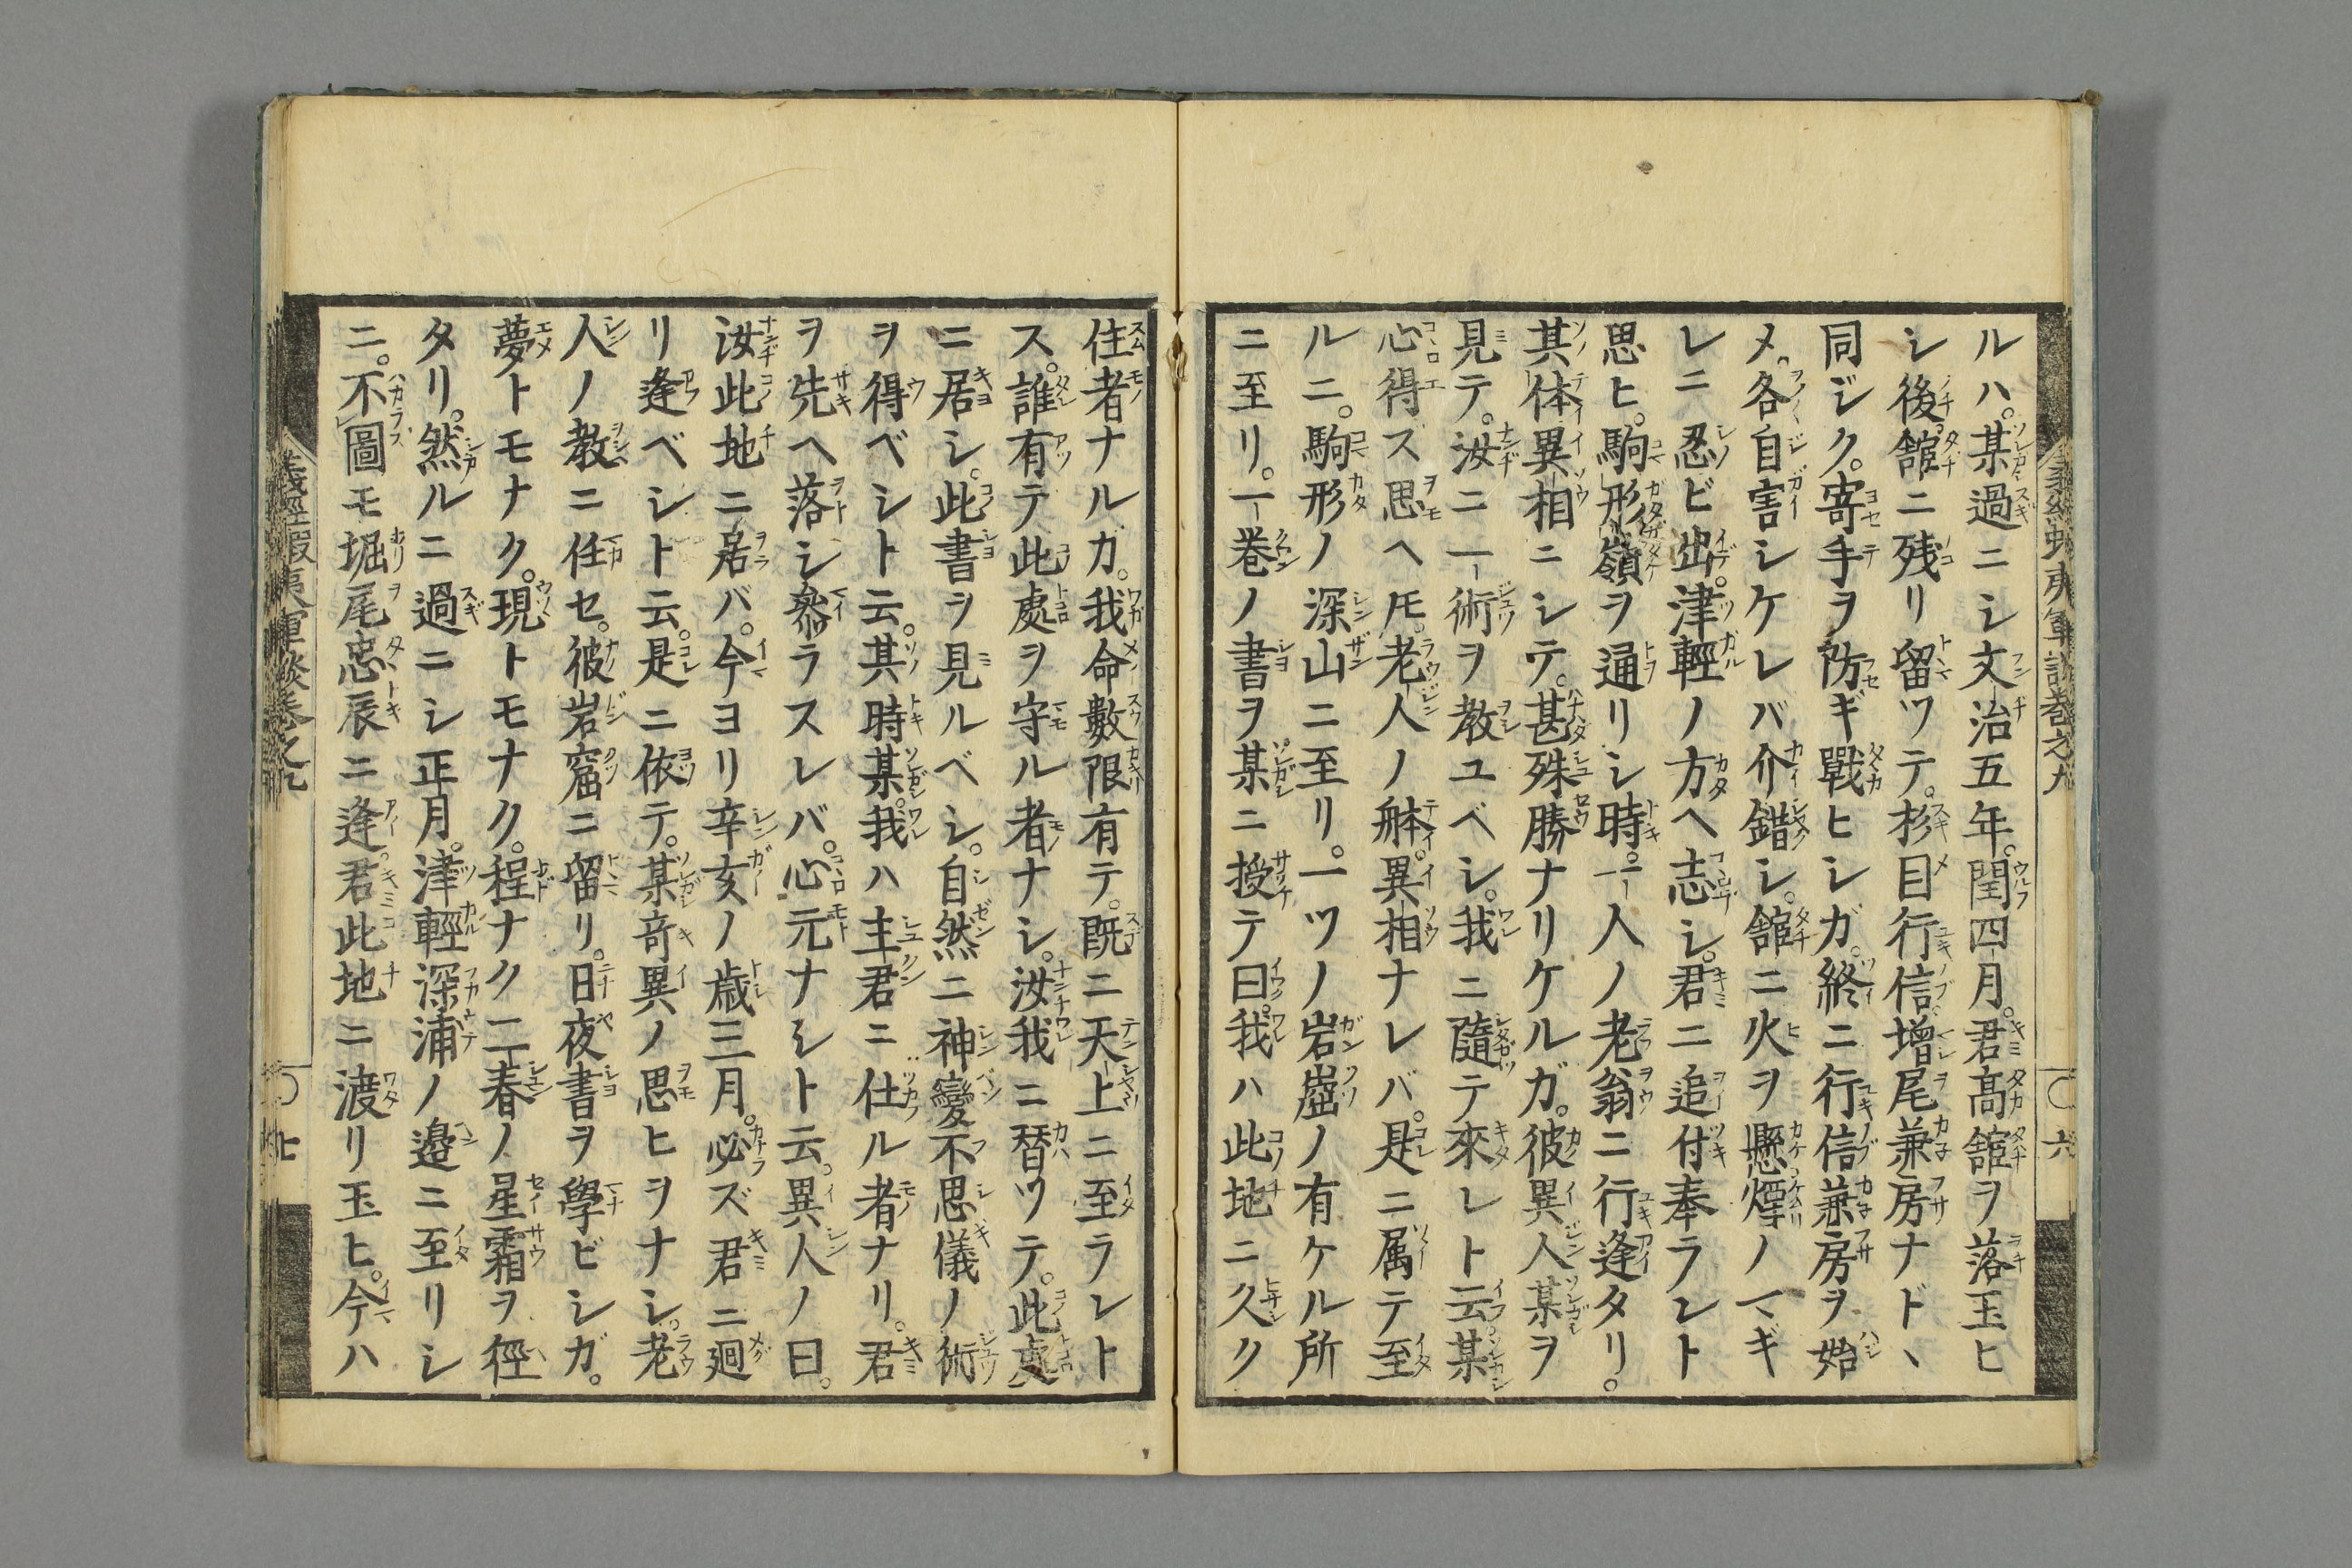 ルハ。某過ニシ文治五年。閏四月。君高舘ヲ落玉ヒ
シ後。舘ニ残リ留ツテ。杉目行信増尾兼房ナド、
同ジク。寄手ヲ防ギ戰ヒシガ。終ニ行信兼房ヲ始
メ。各自害シケレバ介錯シ。舘ニ火ヲ懸煙ノマギ
レニ忍ビ出。津輕ノ方ヘ志シ。君ニ追付奉ラント
思ヒ。駒形嶺ヲ通リシ時。一人ノ老翁ニ行逢タリ。
其体異相ニシテ。甚殊勝ナリケルガ。彼異人某ヲ
見テ。汝ニ一術ヲ教ユベシ。我ニ隨テ來レト云。某
心得ス思ヘ𪜈。老人ノ躰。異相ナレバ。是ニ属テ至
ルニ。駒形ノ深山ニ至リ。一ツノ岩墟ノ有ケル所
ニ至リ。一巻ノ書ヲ某ニ授テ曰。我ハ此地ニ久ク
住者ナルガ。我命數限有テ。既ニ天上ニ至ラレト
ス。誰有テ此處ヲ守ル者ナシ。汝我ニ替ツテ。此處
ニ居シ。此書ヲ見ルベシ。自然ニ神變不思儀ノ術
ヲ得ベシト云。其時某。我ハ主君ニ仕ル者ナリ。君
ヲ先ヘ落シ參ラスレバ。心元ナシト云。異人ノ曰。
汝此地ニ居バ。今ヨリ辛亥ノ歳三月。必ズ君ニ廻
リ逢ベシト云。是ニ依テ。某奇異ノ思ヒヲナシ。老
人ノ教ニ任セ。彼岩窟ニ留リ。日夜書ヲ學ビシガ。
夢トモナク。現トモナク。程ナク二春ノ星霜ヲ徑
タリ。然ルニ過ニシ正月。津輕深浦ノ邉ニ至リシ
ニ。不圖モ堀尾忠辰ニ逢君此地ニ渡リ玉ヒ。今ハ
義經蝦夷軍談巻之九
六
義經蝦夷軍談巻之九
七